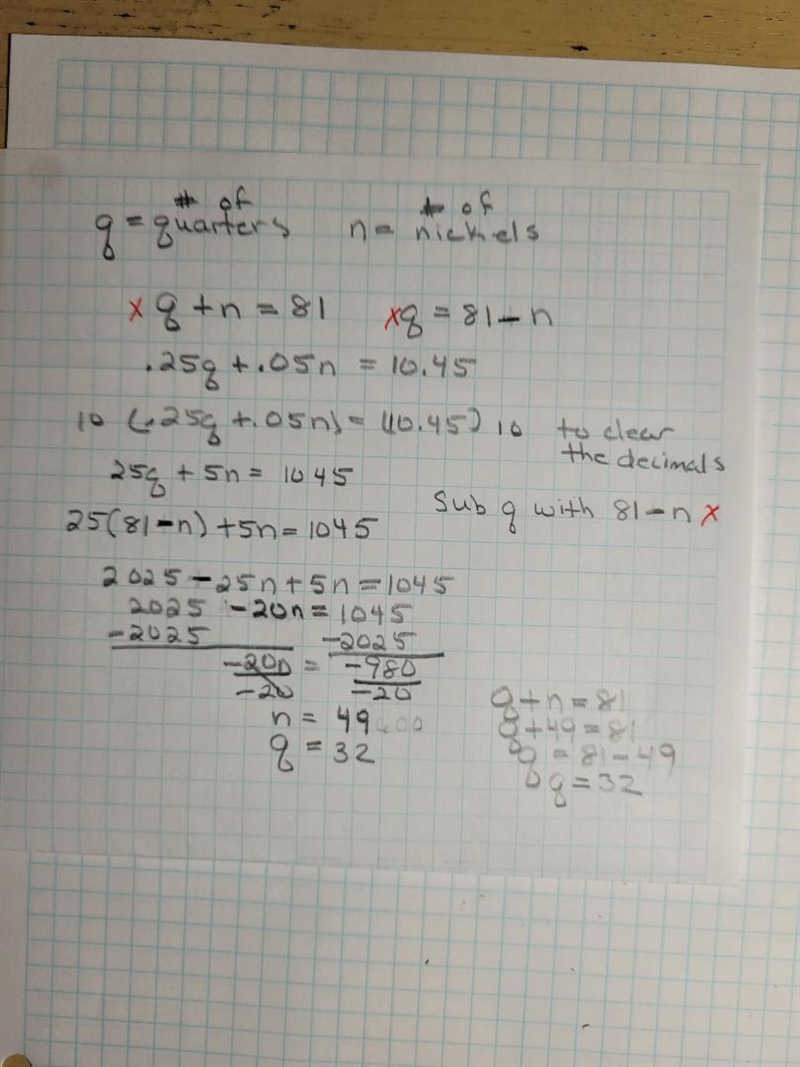 # of
q = quarters
# of
n = nickels
x q + n = 81
x q = 81 - n
.25q + .05n = 10.45
10 (.25q + .05n) = (10.45) 10 to clear
the decimals
25q + 5n = 1045
Sub q with 81 - n x
25(81 - n) + 5n = 1045
2025 - 25n + 5n = 1045
2025 - 20n = 1045
-2025 -2025
-20n = -980
-20 -20
n = 49.00
q = 32
q + n = 81
q + 49 = 81
q = 81 - 49
q = 32